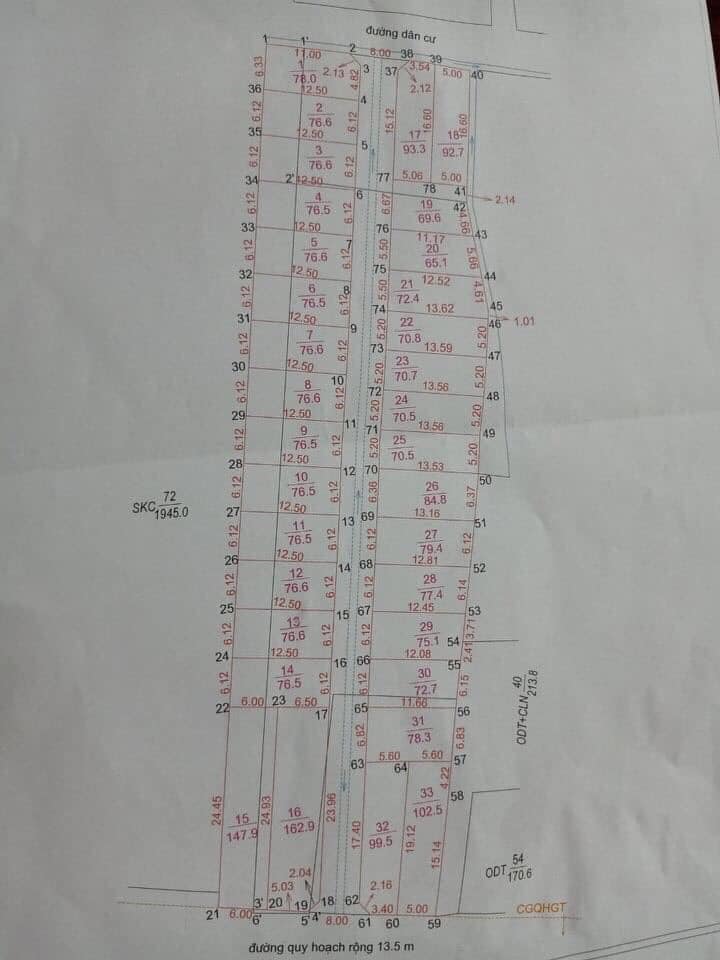 đường dân cư
1 1' 2 8.00 38 39
11.00 3.54 5.00 40
6.33 1 78.0 2.13 4.82 3 37 2.12
36 12.50 4
6.12 2 76.6 6.12 15.12 16.60 16.60
35 12.50 5 17 93.3 18 92.7
6.12 3 76.6 6.12
34 2' 12.50 6 77 5.06 78 5.00 41 2.14
6.12 4 76.5 6.12 6.67 19 69.6 42 4.66
33 12.50 7 76 11.17 43
6.12 5 76.6 6.12 5.50 20 65.1 5.66
32 12.50 8 75 12.52 44
6.12 6 76.5 6.12 5.50 21 72.4 4.61
31 12.50 9 74 13.62 45 46 1.01
6.12 7 76.6 6.12 5.20 22 70.8 5.20
30 12.50 10 73 13.59 47
6.12 8 76.6 6.12 5.20 23 70.7 5.20
29 12.50 11 72 13.56 48
6.12 9 76.5 6.12 5.20 24 70.5 5.20
28 12.50 12 71 13.56 49
6.12 10 76.5 6.12 5.20 25 70.5 5.20
27 12.50 13 70 13.53 50
SKC 72 1945.0
6.12 11 76.5 6.12 6.36 26 84.8 6.37
26 12.50 14 69 13.16 51
6.12 12 76.6 6.12 6.12 27 79.4 6.12
25 12.50 15 68 12.81 52
6.12 13 76.6 6.12 6.12 28 77.4 6.14
24 12.50 16 67 12.45 53
6.12 14 76.5 6.12 6.12 29 75.1 54 3.71
66 12.08 55 2.41
6.12 30 72.7 6.15
22 6.00 23 6.50 17 65 11.66 56
ODT+CLN 40 213.8
6.82 31 78.3 6.83
63 5.60 64 5.60 57
24.45 15 147.9 24.93 16 162.9 23.96 17.40 32 99.5 19.12 33 102.5 4.22 58
15.14
ODT 54 170.6
5.03 2.04 2.16
21 6.00 3' 6' 20 19 5' 4' 18 8.00 62 61 3.40 60 5.00 59 CGQHGT
đường quy hoạch rộng 13.5 m